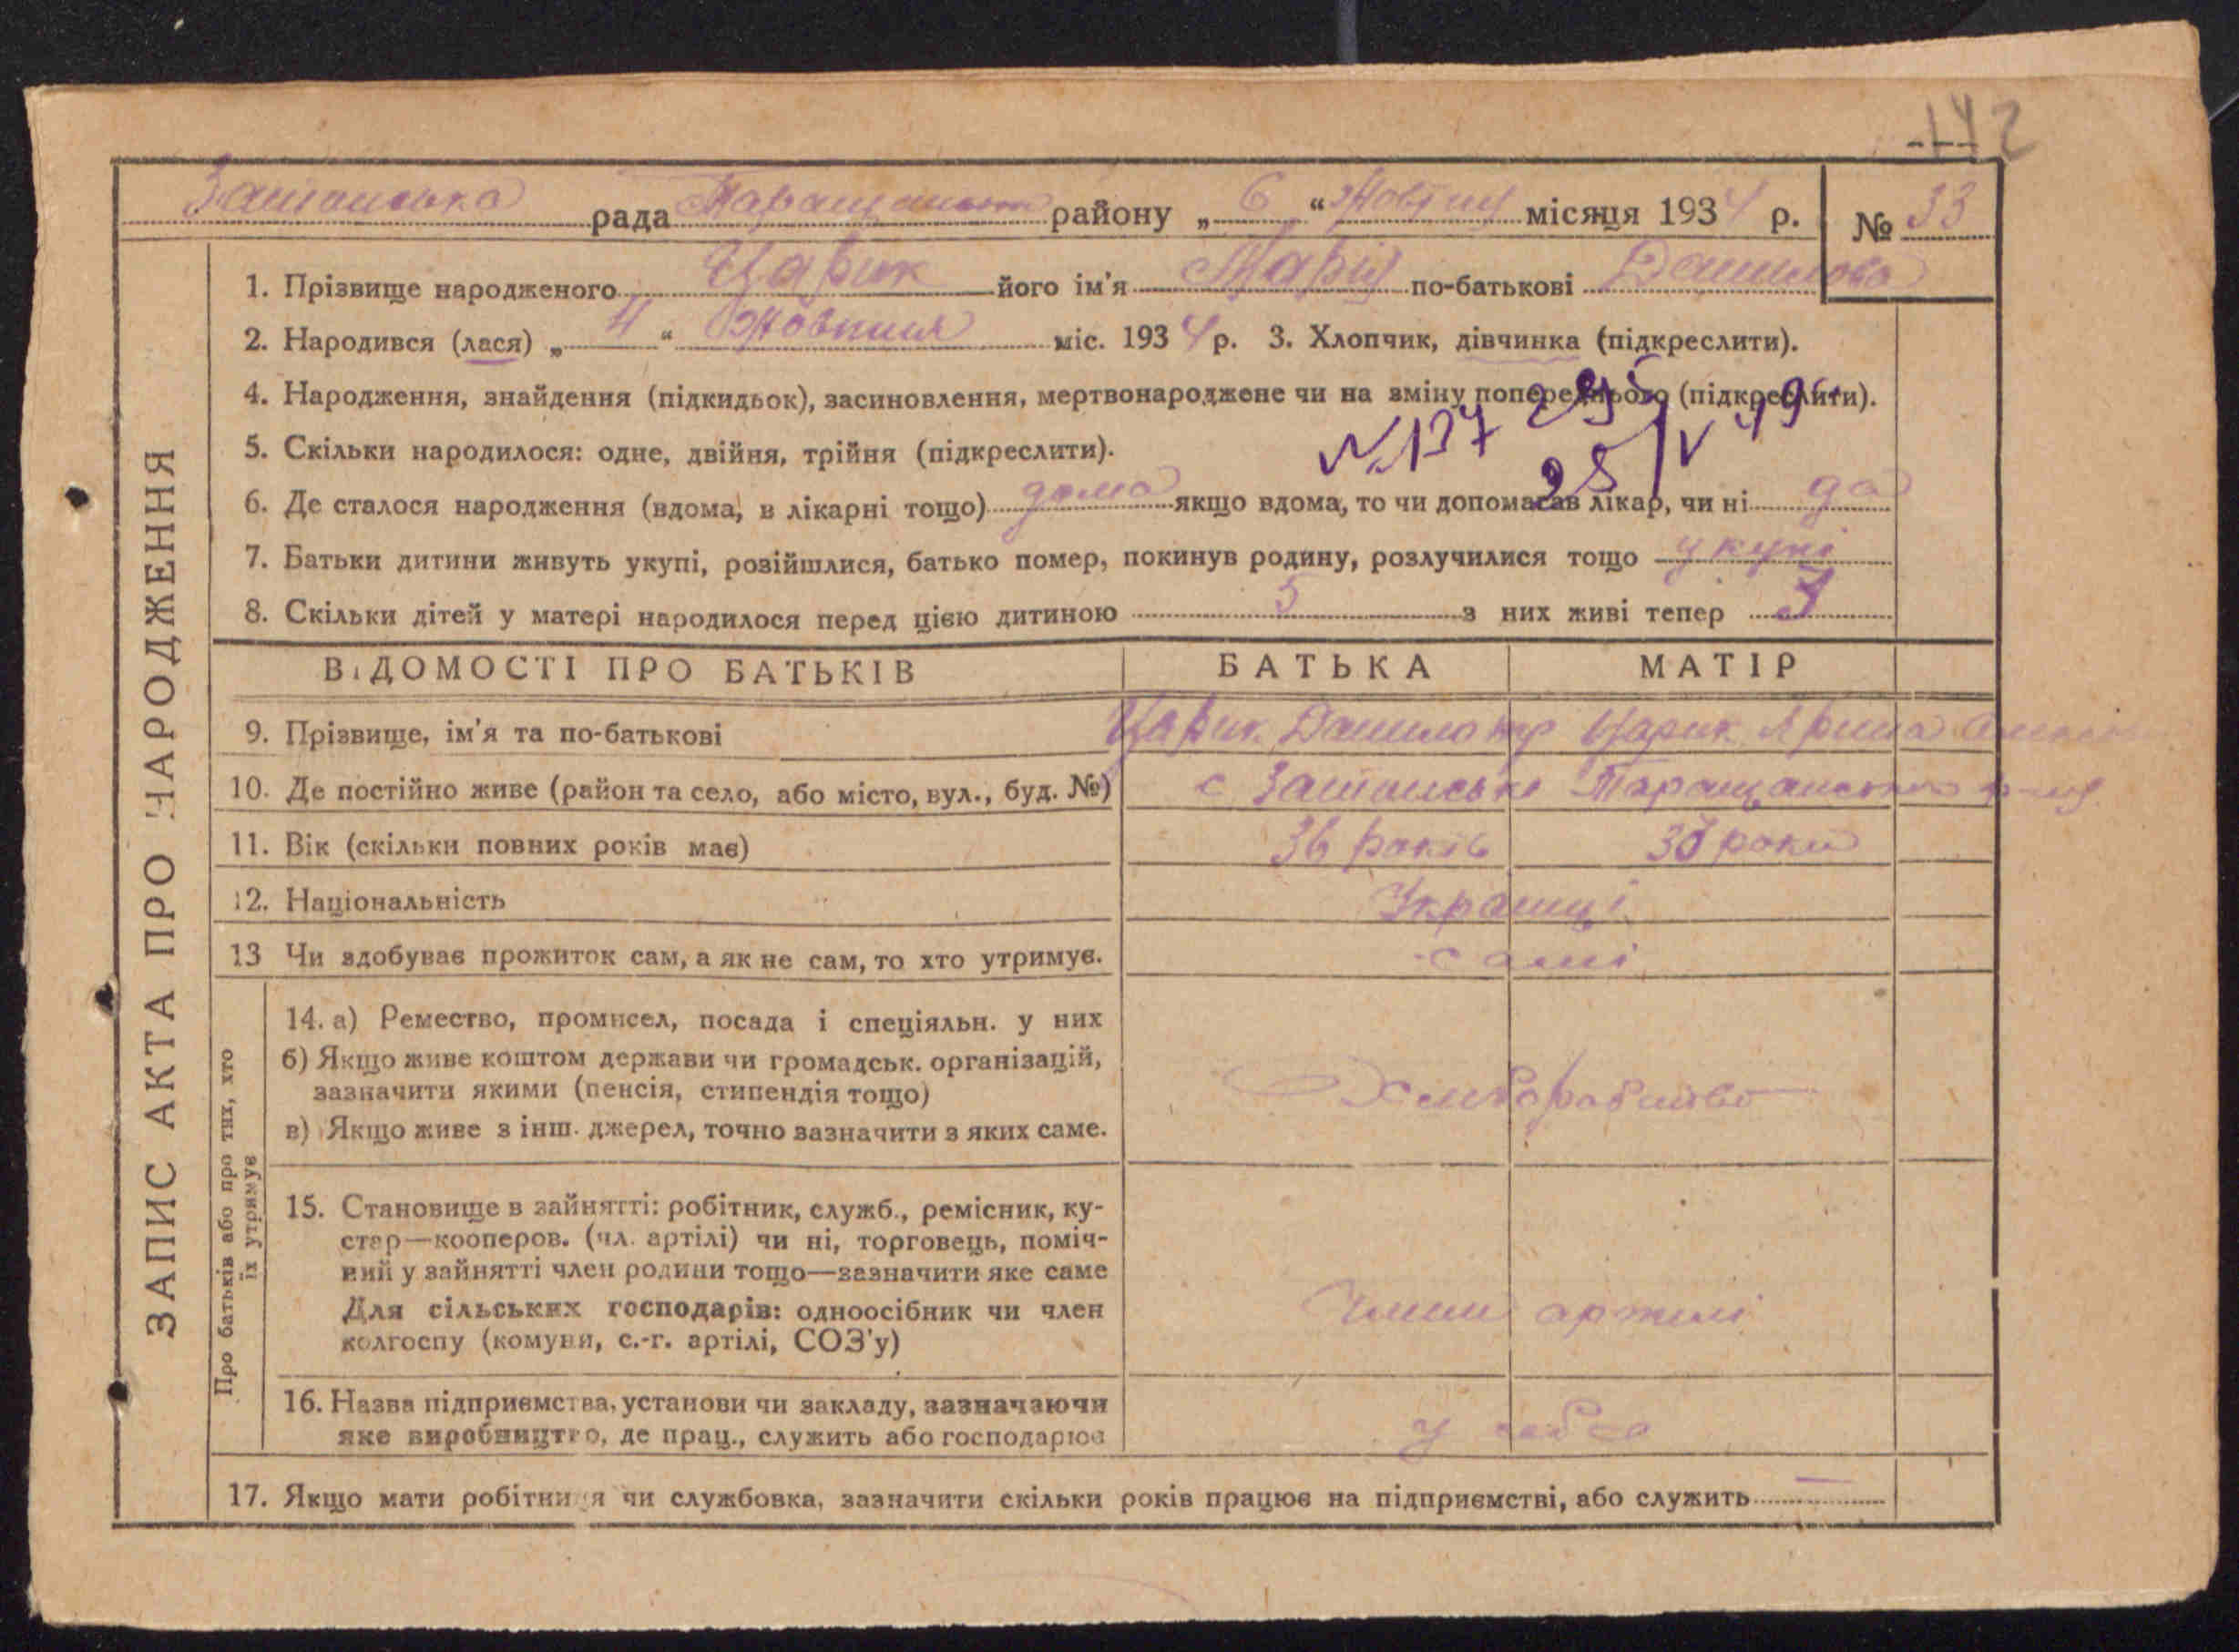 142
рада района „ 6 “ місяця 1934 р. № 33
1. Прізвище народженого Царик його ім'я Марія по-батькові Данилова
2. Народився (лася) „ 4 “ Жовтня міс. 1934 р. 3. Хлопчик, дівчинка (підкреслити).
4. Народження, знайдення (підкидьок), засиновлення, мертвонароджене чи на зміну попереднього (підкреслити).
5. Скільки народилося: одне, двійня, трійня (підкреслити).
№ 137
25/V 49
6. Де сталося народження (вдома, в лікарні тощо) дома якщо вдома, то чи допомагав лікар, чи ні да
7. Батьки дитини живуть укупі, розійшлися, батько помер, покинув родину, розлучилися тощо укупі
8. Скільки дітей у матері народилося перед цією дитиною 5 з них живі тепер
ВІДОМОСТІ ПРО БАТЬКІВ БАТЬКА МАТІР
9. Прізвище, ім'я та по-батькові Царик Данило Царик Арина
10. Де постійно живе (район та село, або місто, вул., буд. №) с
11. Вік (скільки повних років має) 36 років роки
12. Національність Українці
13 Чи здобуває прожиток сам, а як не сам, то хто утримує. самі
14. а) Ремество, промисел, посада і спеціяльн. у них
б) Якщо живе коштом держави чи громадськ. організацій,
зазначити якими (пенсія, стипендія тощо)
в) Якщо живе з інш. джерел, точно зазначити з яких саме.
Хлиборобство
15. Становище в зайнятті: робітник, служб., ремісник, ку-
стар—кооперов. (чл. артілі) чи ні, торговець, поміч-
ний у зайнятті член родини тощо—зазначити яке саме
Для сільських господарів: одноосібник чи член
колгоспу (комуни, с.-г. артілі, СОЗ'у)
Члени артилі
16. Назва підприємства, установи чи закладу, зазначаючи
яке виробництво, де прац., служить або господарює
у себе
17. Якщо мати робітниця чи службовка, зазначити скільки років працює на підприємстві, або служить —
ЗАПИС АКТА ПРО НАРОДЖЕННЯ
Про батьків або про тих, хто
їх утримує